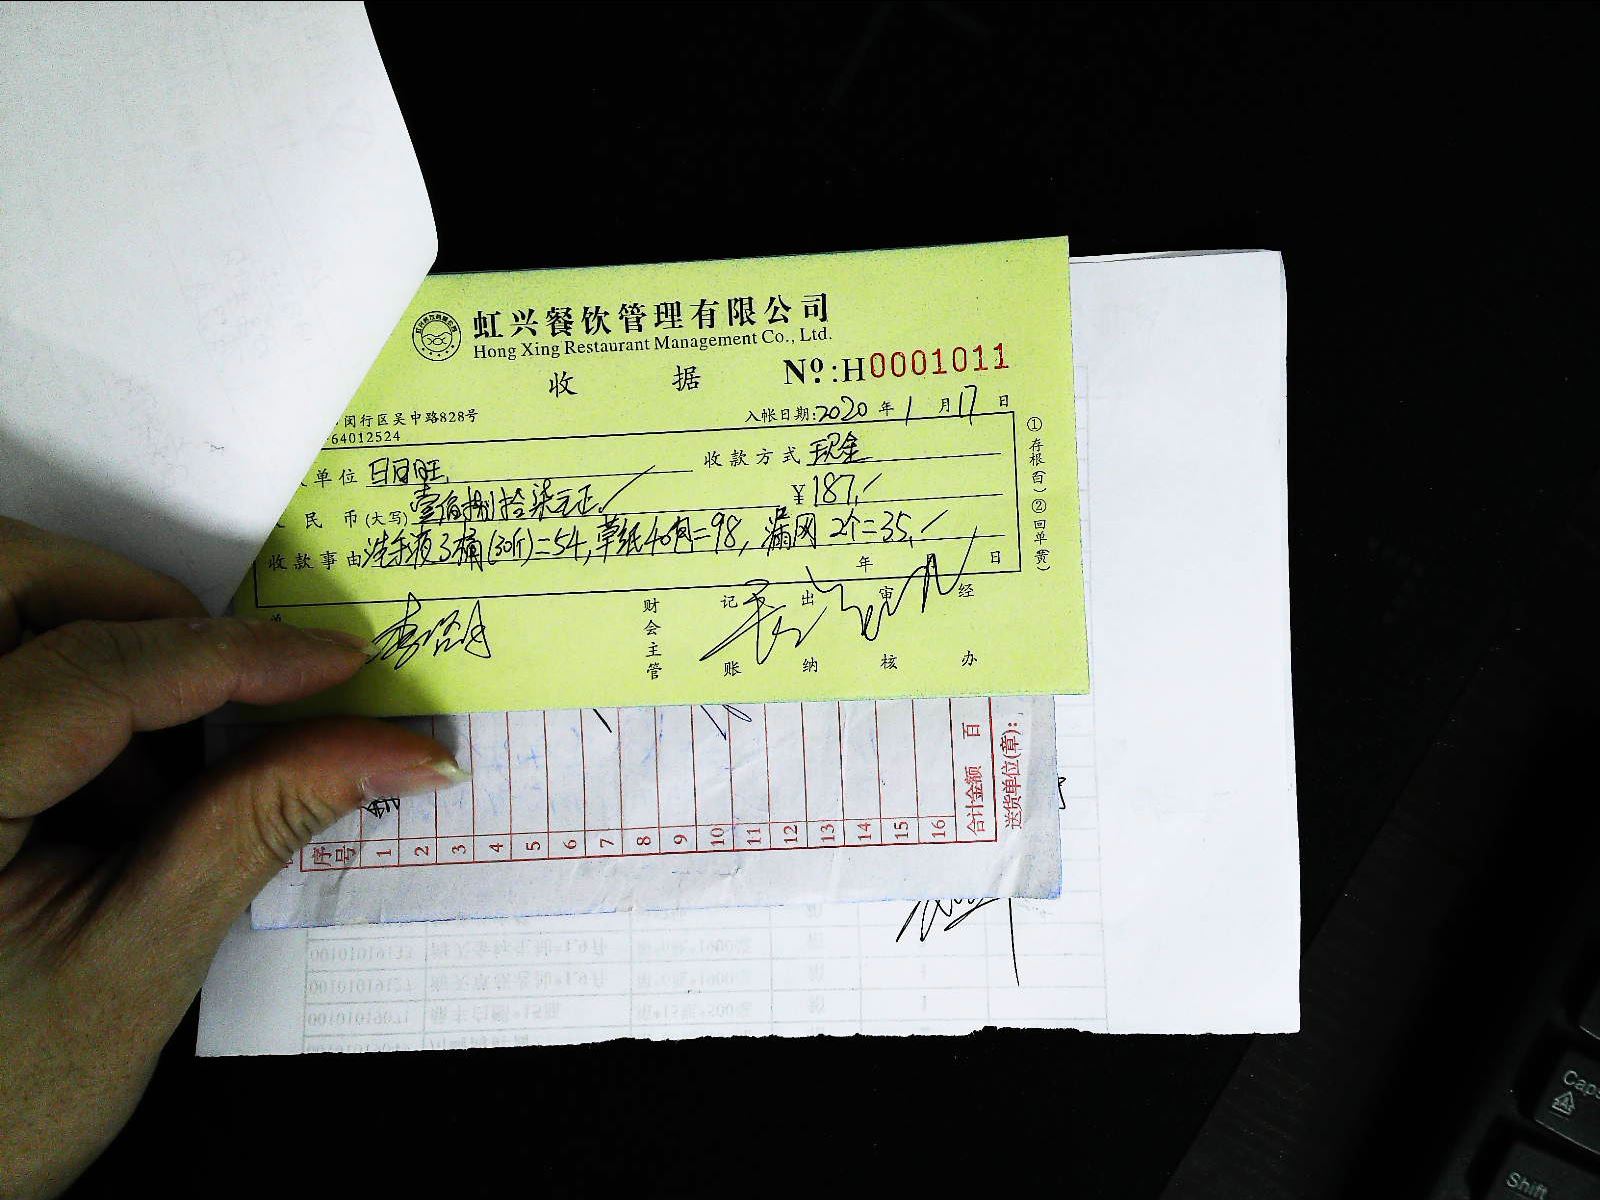 虹兴餐饮管理有限公司
Hong Xing Restaurant Management Co., Ltd.
收据
Nº.:H0001011
闵行区吴中路828号
64012524
入帐日期:2020年1月17日
单位 日日旺
收款方式 现金
民币(大写) 壹佰捌拾柒元正
¥187.-
收款事由 洗手液3桶(30斤)=54,草纸40包=98,漏网2个=35.-
年 日
财会主管
记账
出纳
审核
经办
①存根(白)②回单(黄)
序号
1
2
3
4
5
6
7
8
9
10
11
12
13
14
15
16
合计金额 百
送货单位(章):
Caps
Shift